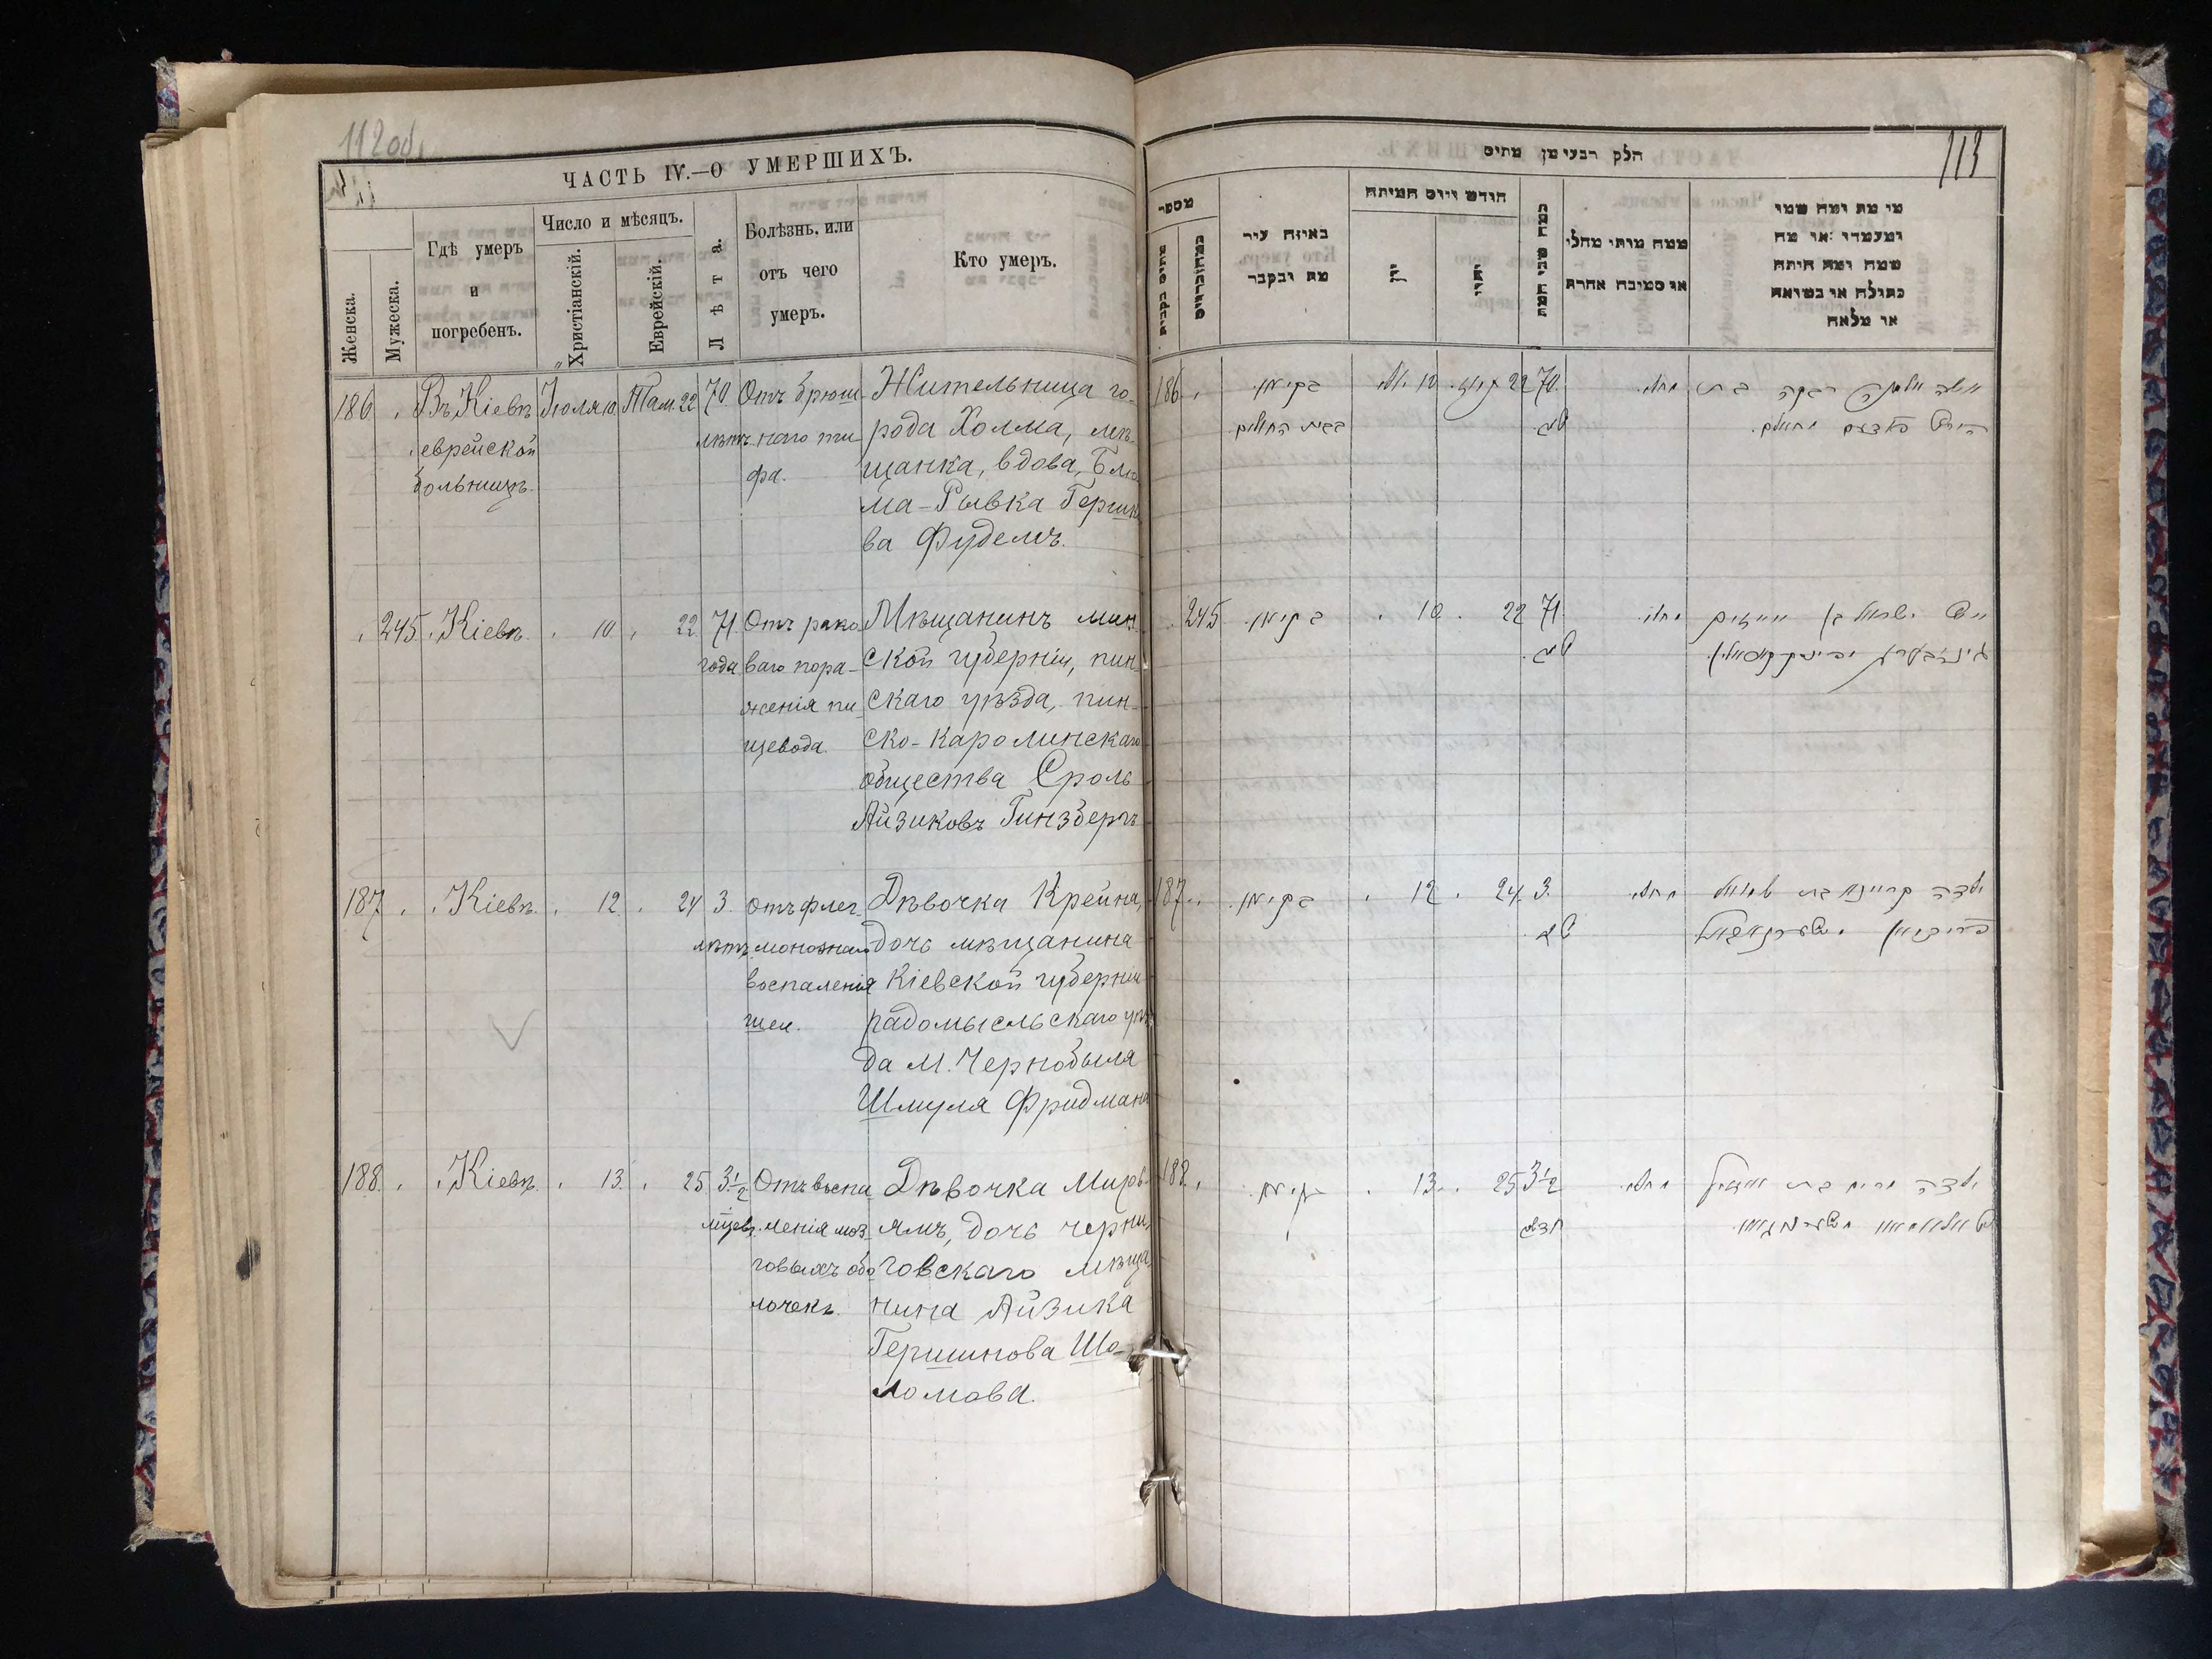 112 об.
ЧАСТЬ IV.—О УМЕРШИХЪ.
Женска.
Мужеска.
Гдѣ умеръ
и
погребенъ.
Число и мѣсяцъ.
Христіанскій.
Еврейскій.
Лѣта.
Болѣзнь. или
отъ чего
умеръ.
Кто умеръ.
186
Въ Кіевѣ
еврейской
больницѣ.
Іюля 10
Там. 22
70
лѣтъ
Отъ брюш
наго ти
фа.
Жительница го-
рода Холма, мѣ-
щанка, вдова, Блю
ма-Рывка Гершк
ва Фудемъ.
245. Кіевѣ.
10
22
71.
года
Отъ рако
ваго пора-
женія пи
щевода.
Мѣщанинъ мин
ской губерніи, пин-
скаго уѣзда, пин-
ско-каролинскаго
общества Сроль
Айзиковъ Гинзбергъ
187
Кіевѣ.
12.
24
3.
лѣтъ
Отъ флег
монознаго
воспаленія
шеи.
Дѣвочка Крейна,
дочь мѣщанина
Кіевской губерніи
радомысльскаго уѣз
да м. Чернобыля
Шмуля Фридмана
188.
Кіевѣ.
13.
25
3 1/2
мѣсяц.
Отъ воспа
ленія моз
говыхъ обо
лочекъ.
Дѣвочка Мирь-
ямъ, дочь черни
говскаго мѣща
нина Айзика
Гершкова Шо-
ломова.
113
חלק רבעי מן מתים
מספר
באיזה עיר
מת ונקבר
חודש ויום המיתה
יון
יהודי
כמה שני המת
ממה מותי מחלי
או סטיבה אחרת
מי מת ומה שמו
ומעמדו או מה
שמה ומה היתה
בתולה או נשואה
או מלאה
186
בקיעוו
בבית החולים
10
22
70.
שנ׳
245
בקיעוו
10
22
71.
שנ׳
187
בקיעוו
12
24
3.
שנ׳
ילדה קריינא בת שמואל
188
בקיעוו
13
25
3 1/2
חדש׳
ילדה מרים בת אייזיק